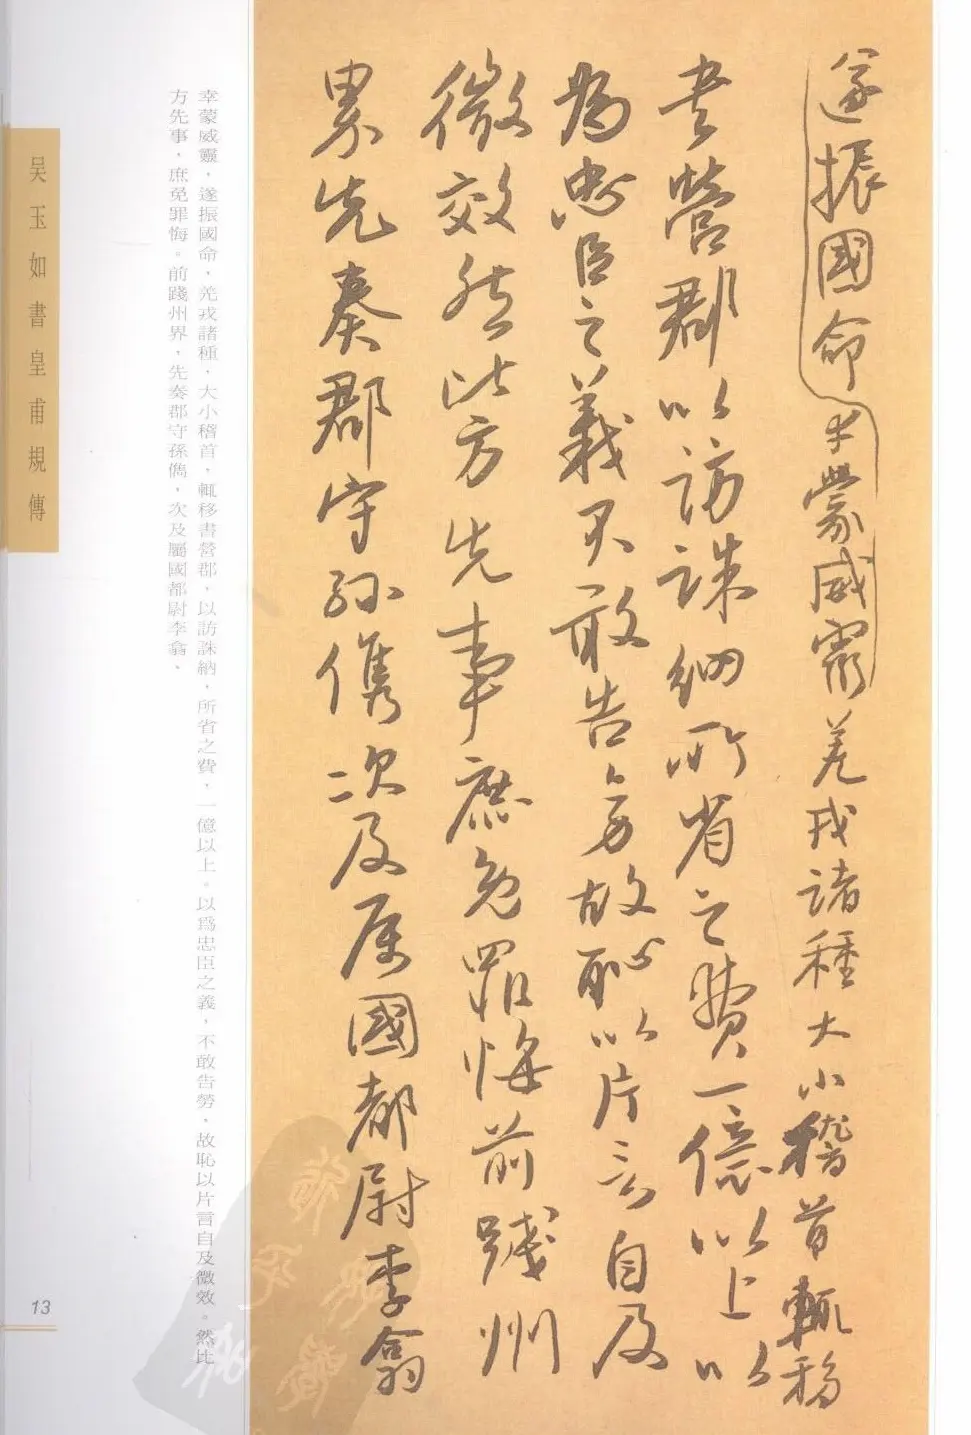 遂振國命幸蒙威靈羌戎諸種大小稽首輒移
書營郡以訪誅納所省之費一億以上以
為忠臣之義不敢告勞故恥以片言自及
微效然比方先事庶免罪悔前踐州
界先奏郡守孫儁次及属國都尉李翕
幸蒙威靈，遂振國命，羌戎諸種，大小稽首，輒移書營郡，以訪誅納，所省之費，一億以上。以爲忠臣之義，不敢告勞，故恥以片言自及微效。然比
方先事，庶免罪悔。前踐州界，先奏郡守孫儁，次及屬國都尉李翕、
吴玉如書皇甫規傳
13